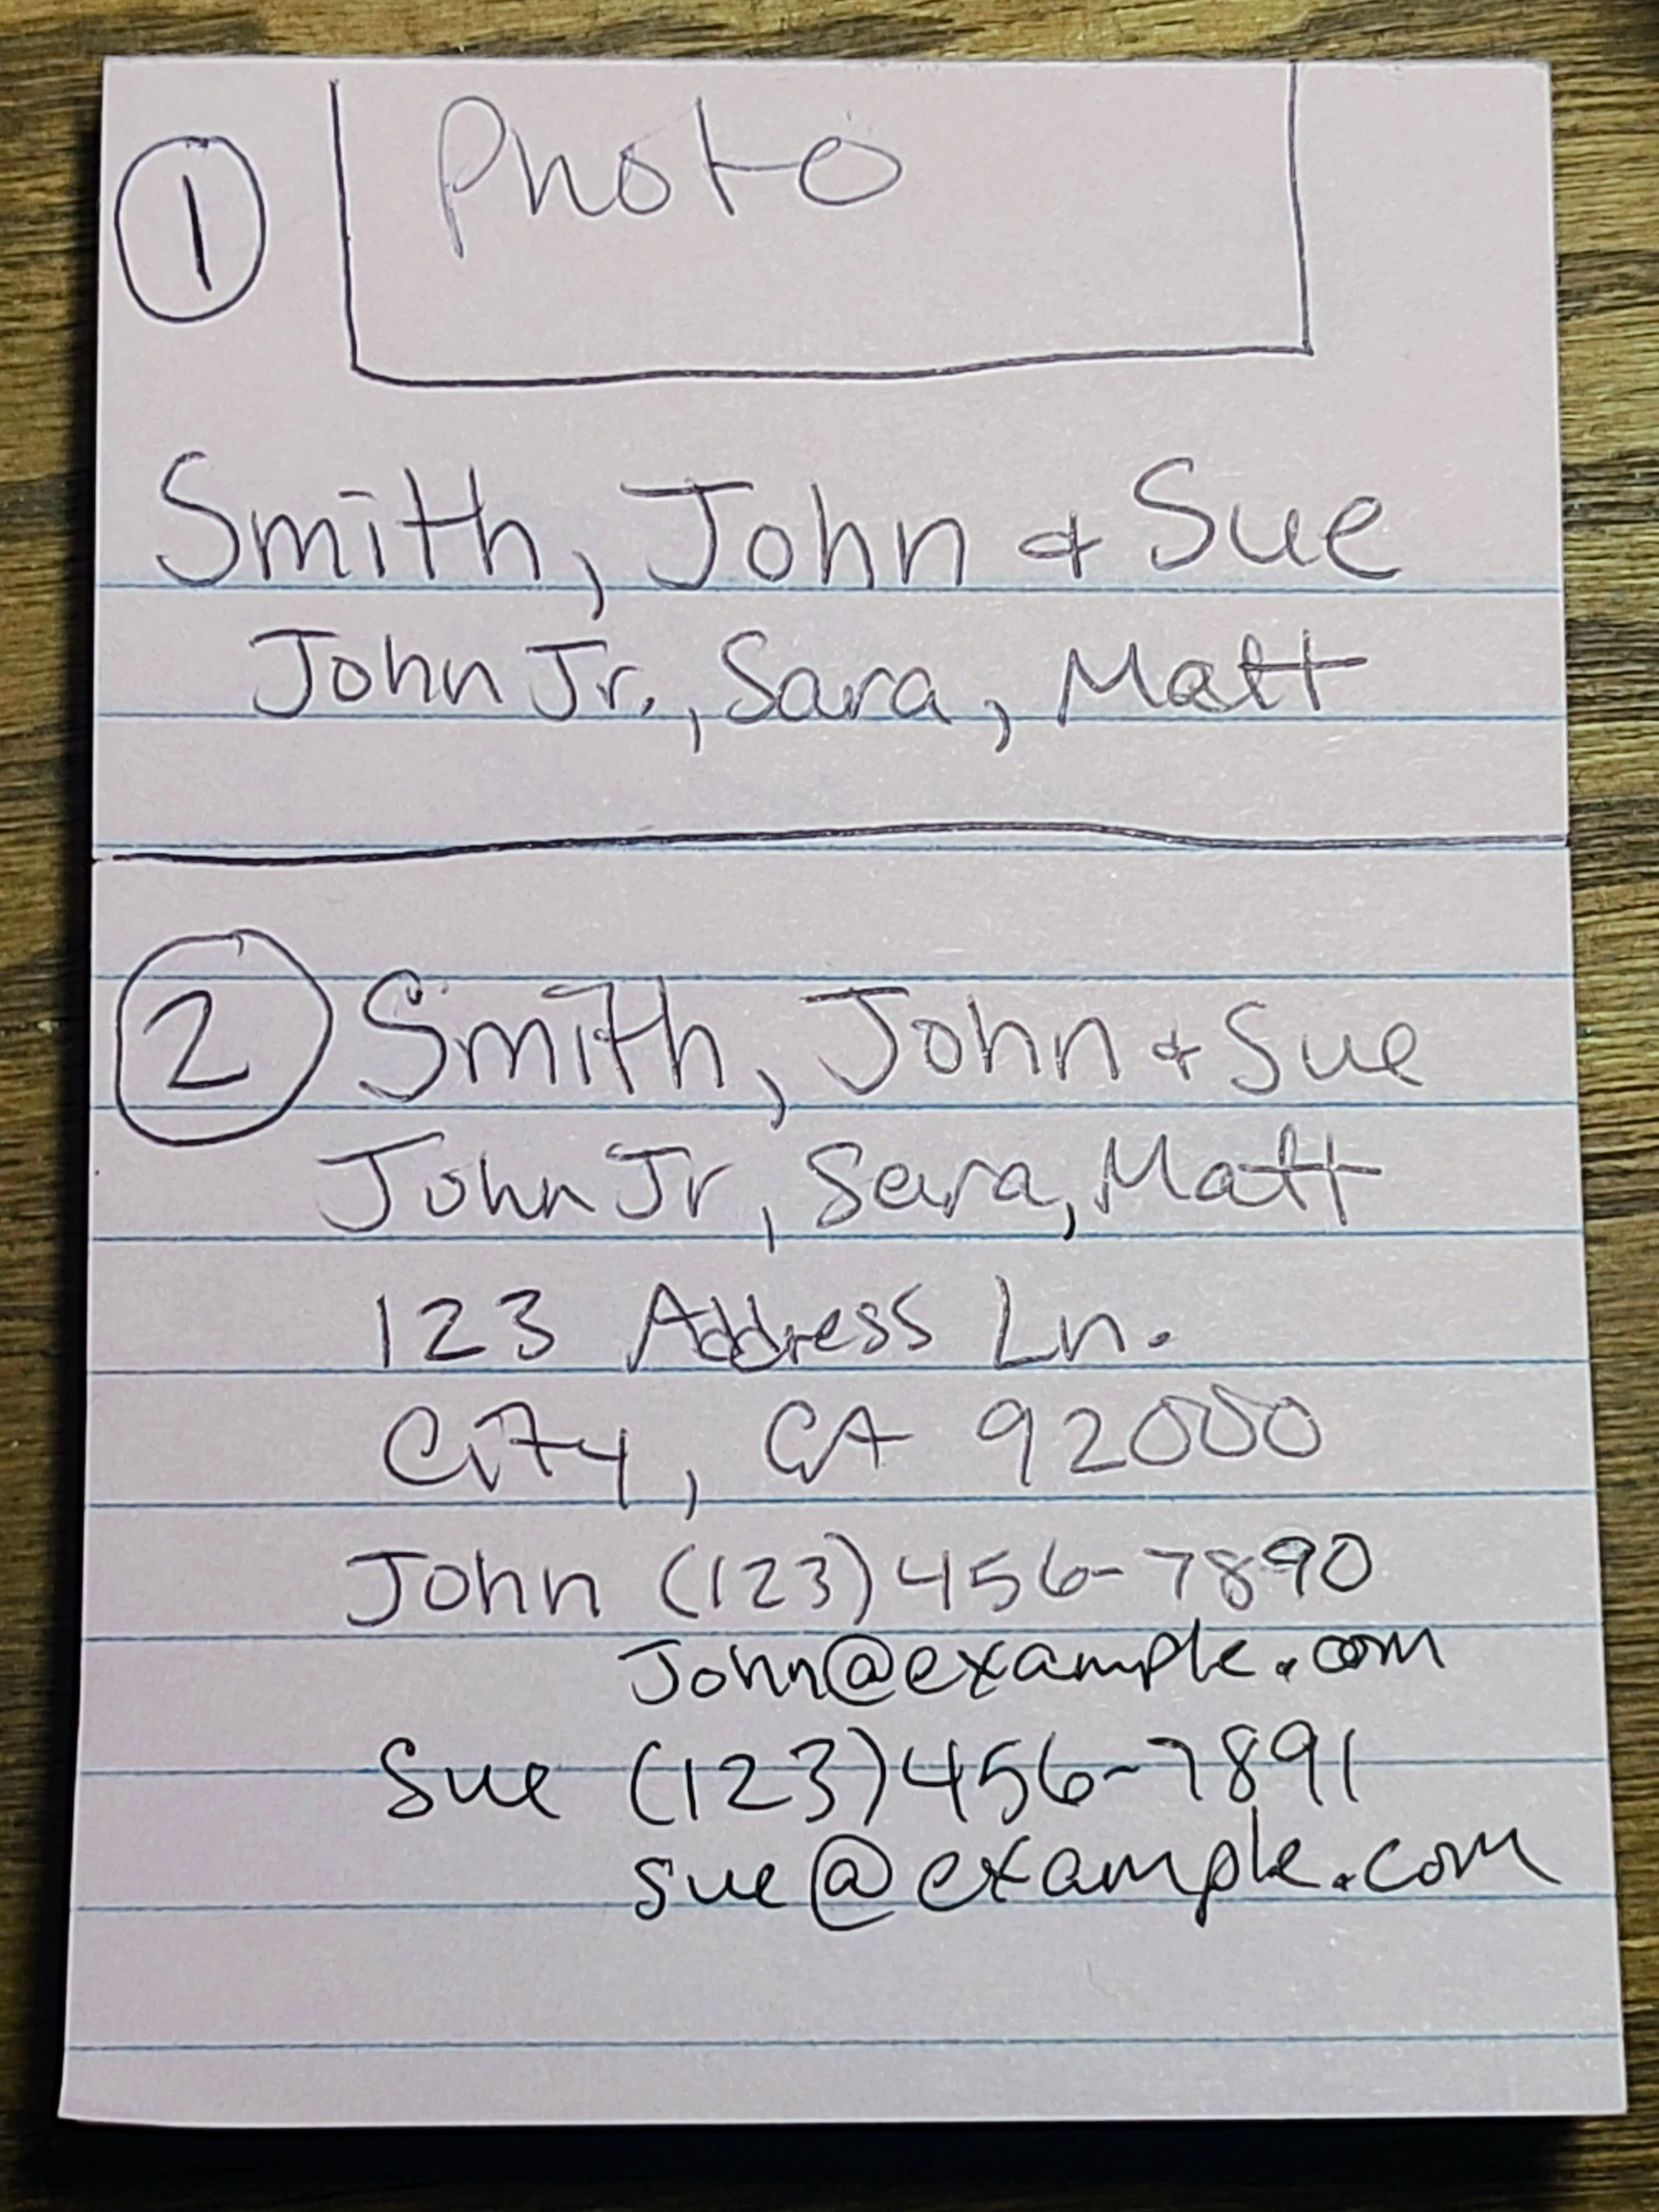 1
Photo
Smith, John & Sue
John Jr., Sara, Matt
2 Smith, John & Sue
John Jr, Sara, Matt
123 Address Ln.
City, CA 92000
John (123)456-7890
John@example.com
Sue (123)456-7891
sue@example.com